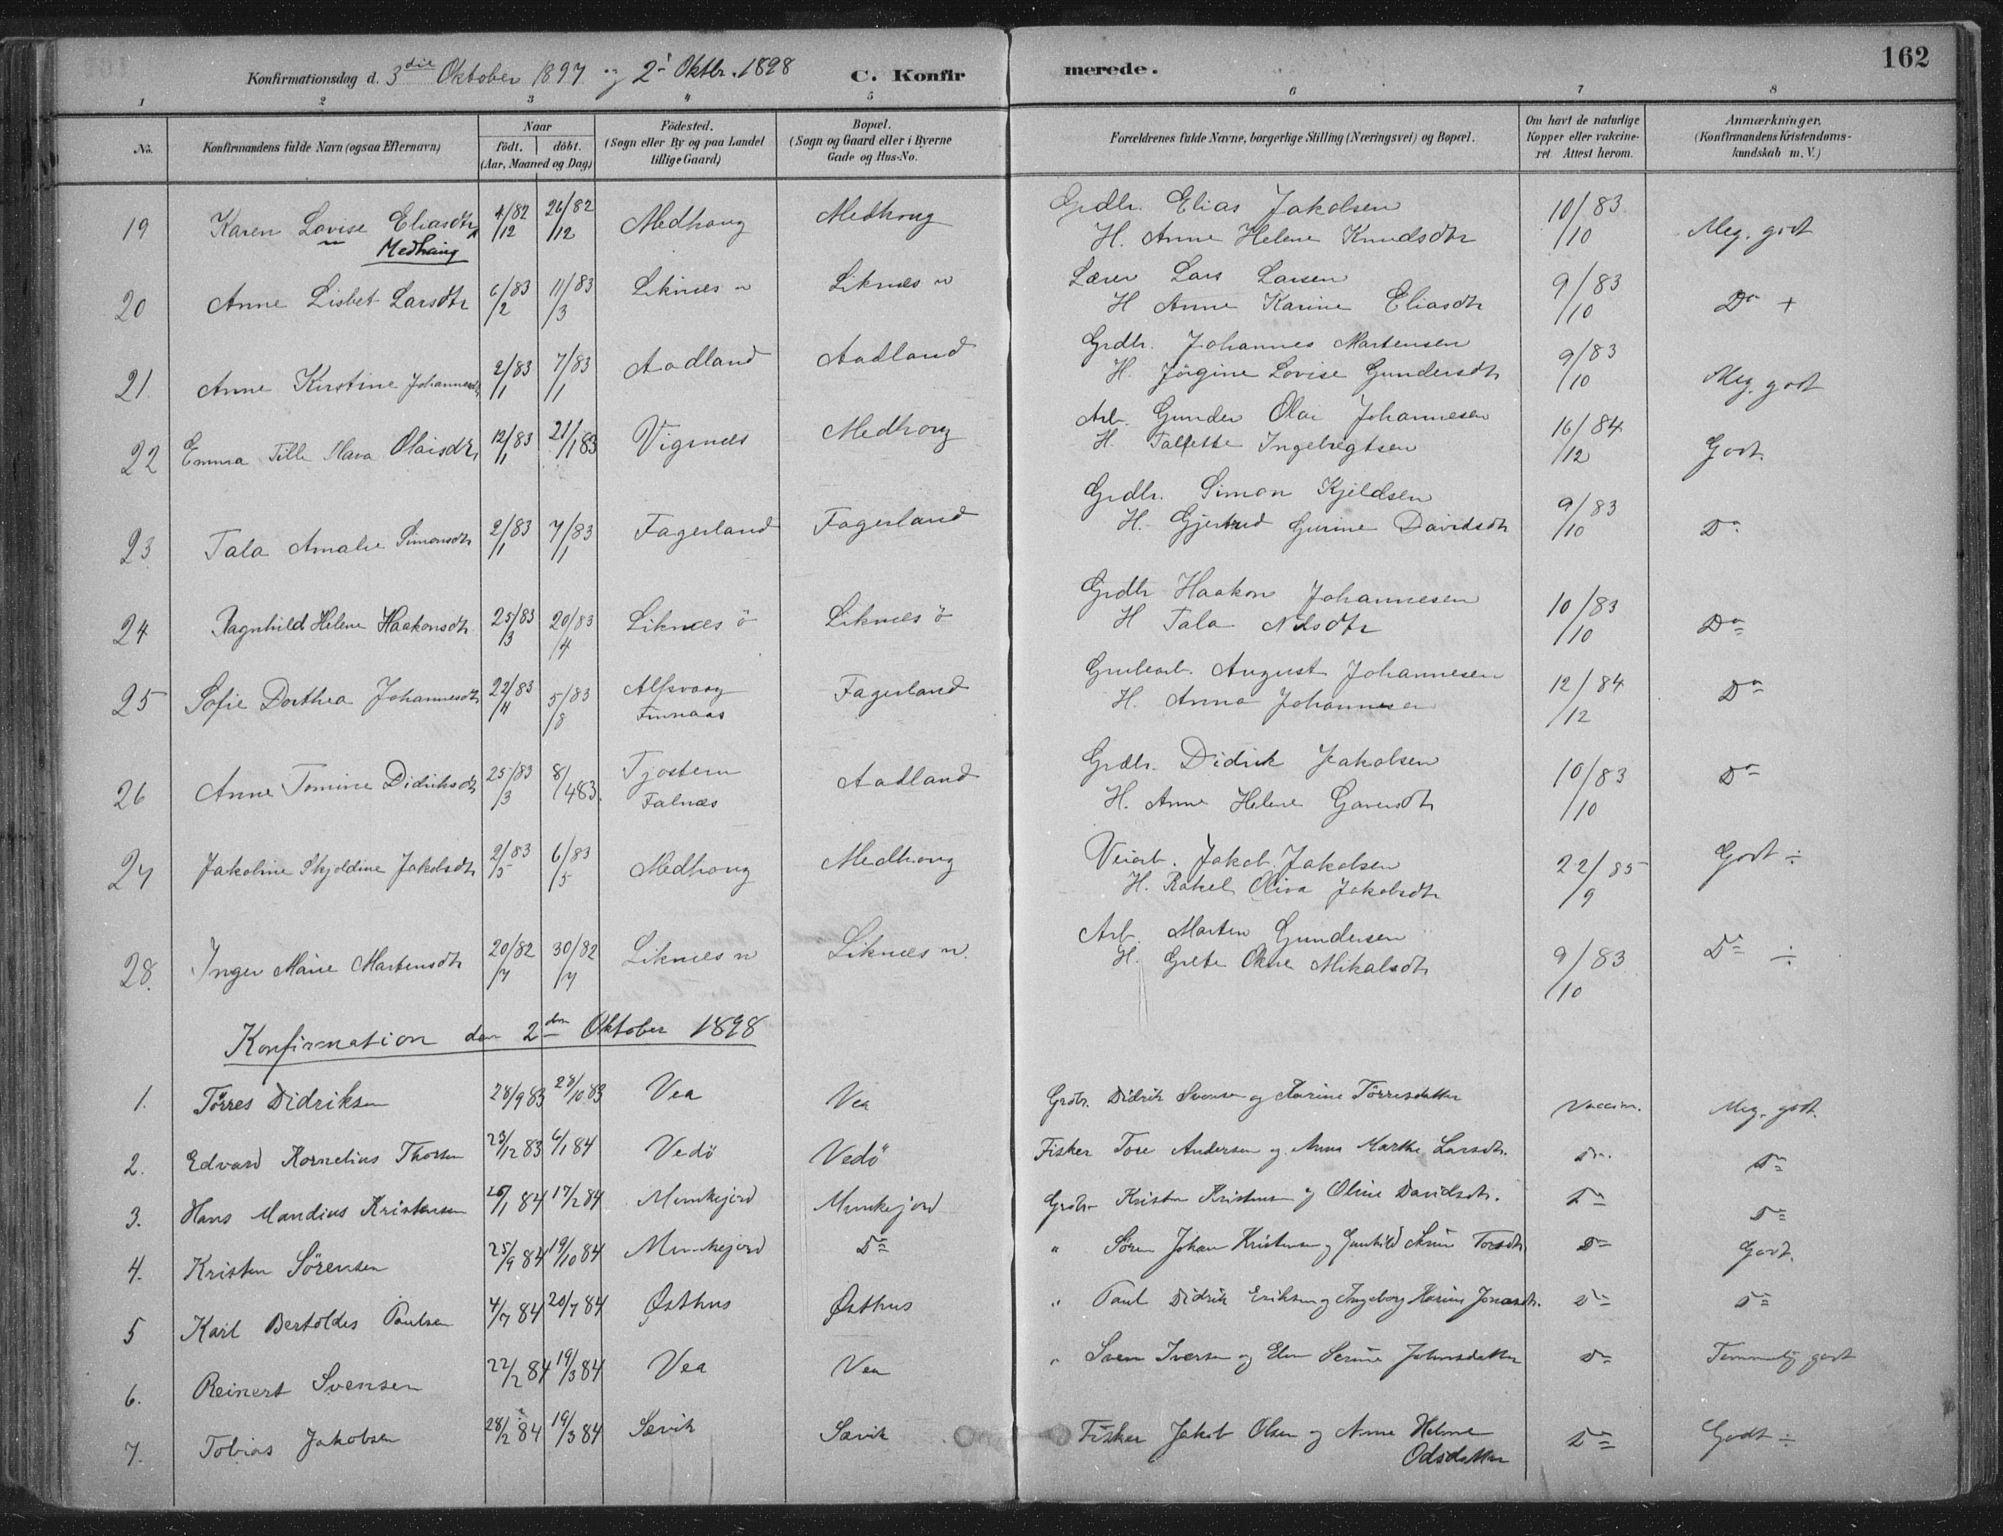 162
Konfirmationsdag d. 3die Oktober 1897 og 2 Oktbr. 1898 C. Konfirmerede.
1 2 3 4 5 6 7 8
No. Konfirmandens fulde Navn (ogsaa Efternavn) Naar født. døbt. (Aar, Maaned og Dag) Fødested. (Sogn eller By og paa Landet tillige Gaard) Bopæl. (Sogn og Gaard eller i Byerne Gade og Hus-No. Forældrenes fulde Navne, borgerlige Stilling (Næringsvei) og Bopæl. Om havt de naturlige Kopper eller vakcineret. Attest herom. Anmærkninger. (Konfirmandens Kristendomskundskab m. V.)
19 Karen Lovise Eliasdtr 4/82 /12 26/82 /12 Medhoug Medhoug Grdbr. Elias Jakobsen 10/83 /10 Meg. godt
Medhaug H. Anne Helene Knudsdtr
20 Anne Lisbet Larsdtr 6/83 /2 11/83 /3 Liknes n Liknes n Lærer Lars Larsen 9/83 /10 Do +
H Anne Karine Eliasdtr
21. Anne Kirstine Johannesdtr 2/83 /1 7/83 /1 Aadland Aadland Grdbr. Johannes Martensen 9/83 /10 Meg. godt
H. Jørgine Lovise Gundersdtr
22 Emma Tille Olaisdtr 12/83 /1 21/183 Vigsnes Medhoug Arb. Gunder Olai Johannesen 16/84 /12 Godt.
H. Talette Ingebregtsen
23 Tala Amalie Simonsdtr 2/83 /1 7/83 /1 Fagerland Fagerland Grdbr. Simon Kjeldsen 9/83 /10 Do
H. Gjertrud Gurine Davidsdtr
24 Ragnhild Helene Haakonsdtr. 25/83 /3 20/83 /4 Liknes ö Liknes ö Grdbr Haakon Johannesen 10/83 /10 Do
H Tala Nilsdtr
25 Sofie Dorthea Johannesdtr 22/83 /4 5/83 /8 Alfsvaag Finnaas Fagerland Grubearb. August Johannesen 12/84 /12 Do
H. Anna Johannesen
26 Anne Tomine Didriksdtr 25/83 /3 8/483. Tjostem Falnæs Aadland Grdbr. Didrik Jakobsen 10/83 /10 Do
H. Anne Helene
27 Jakobine Skjoldine Jakobsdtr 2/83 /5 6/83 /5 Medhoug Medhoug Veiarb. Jakob Jakobsen 22/85 /9 Godt ÷
H. Rakel Oliva Jakobsdtr
28. Inger Marie Martensdtr 20/82 /7 30/82 /7 Liknes n Liknes n. Arb. Marten Gundersen 9/83 /10 Do ÷
H. Grete Oline Mikalsdtr
Konfirmation den 2den Oktober 1898
1. Törres Didriksen 28/9 83 28/10 83 Vea Vea Grdbr. Didrik Svensen og Karine Törresdatter Vaccin. Meg. godt.
2. Edvard Kornelius Thorsen 23/12 83 6/1 84 Vedö Vedö Fisker Tore Andersen og Anna Marthe Larsdtr. Do. Do
3. Hans Mandius Kristensen 26/1 84 17/2 84 Munkejord Munkejord Grdbr Kristen Kristensen og Oline Davidsdtr. Do Do
4. Kristen Sörensen 25/9 84 19/10 84 Munkejord Do " Sören Johan Kristensen og Gunhild Torsdtr Do Godt.
5 Karl Bertoldes Paulsen 4/7 84 20/7 84 Østhus Østhus " Paul Didrik Eriksen og Ingeborg Karine Jonasdtr. Do Do
6. Reinert Svensen 22/2 84 19/3 84 Vea Vea " Sven Iversen og Elen Serine Johnsdatter Do Temmelig godt
7. Tobias Jakobsen 28/2 84 19/3 84 Sævik Sævik Fisker Jakob Olsen og Anne Helene Odsdatter Do Godt ÷